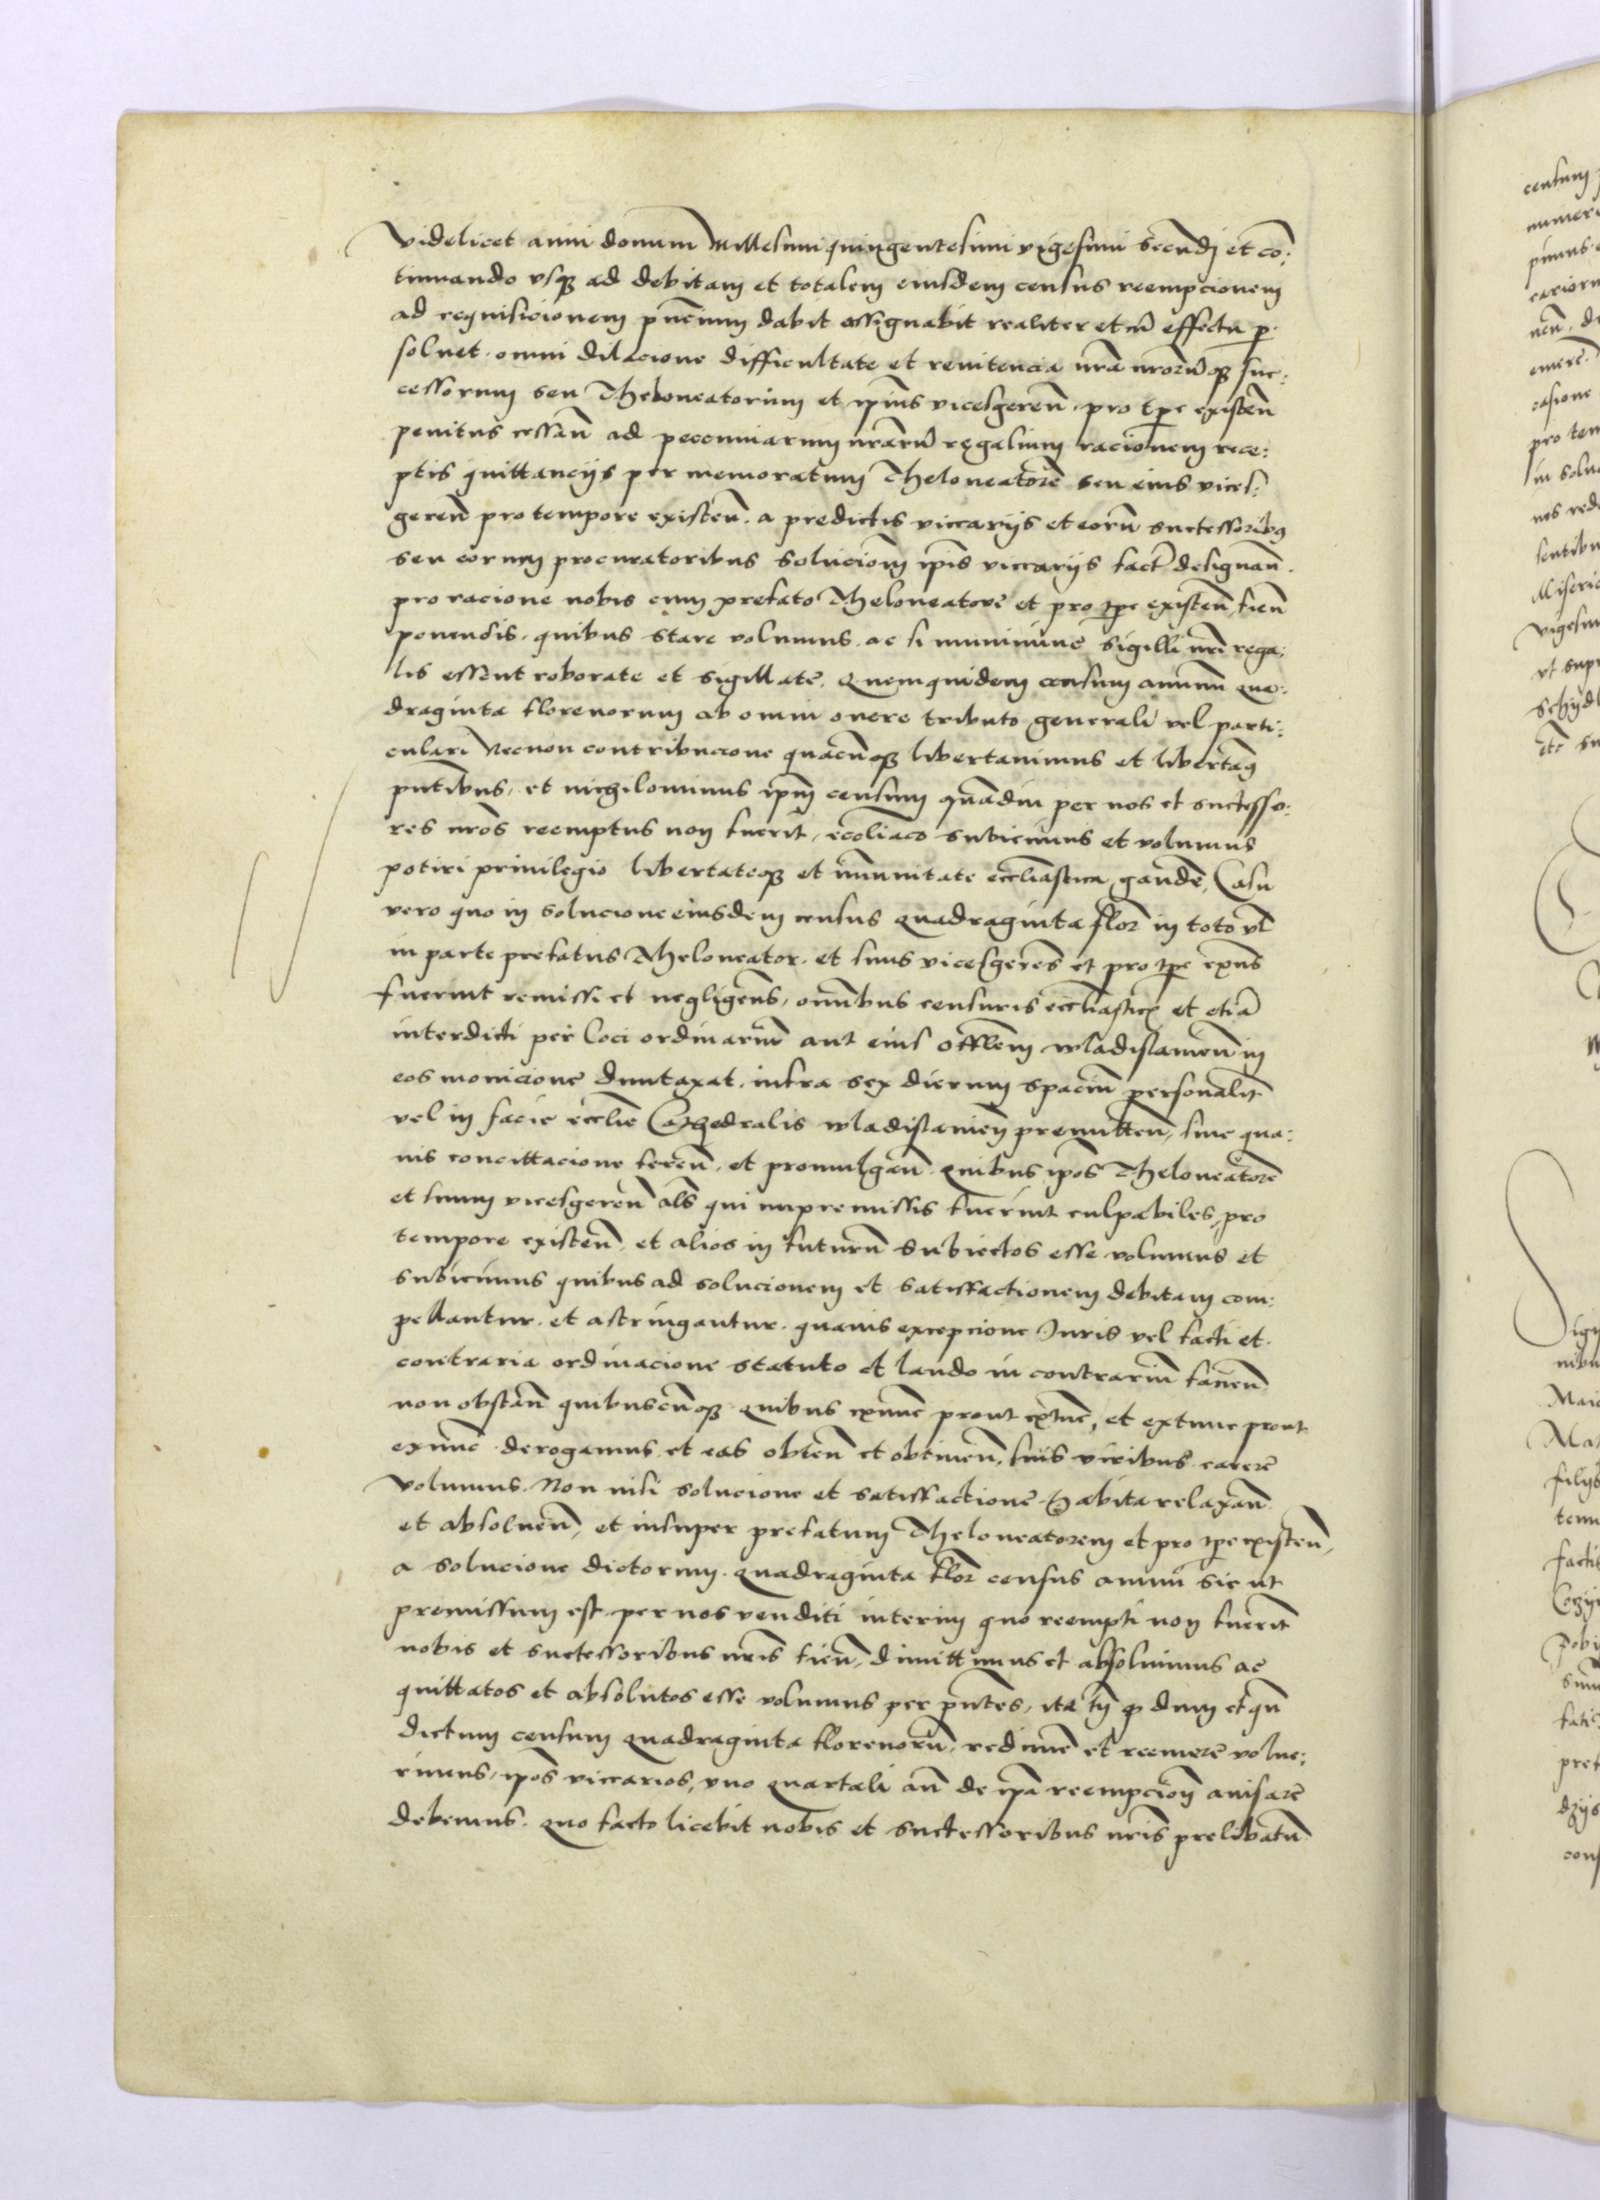 Videlicet anni domini Millesimi quingentesimi vigesimi secundi et co:
tinuando vsq̃ ad debitam et totalem eiusdem census reempcionem
ad requisicionem pñcium dabit assignabit realiter et cũ effectu per
soluet omni dilacione difficultate et renitencia nrã nrorũq̃ suc:
cessorum seu Theloneatorum et ipsius vicesgereñ pro tpe existeñ
penitus cessañ ad pecuniarum nrarũ regalium racionem rece:
ptis quittancijs per memoratum Theloneatorẽ seu eius vices:
gereñ pro tempore existeñ. a predictis viccarijs et eorũ successoribus
seu eorum procuratoribus solucioñ ipis viccarijs fact designañ.
pro racione nobis cum prefato Theloneatore et pro tpe existeñ, fieñ
ponendis. quibus stare volumus. ac si munimine sigilli nri rega:
lis essent roborate et sigillate. Quemquidem censum annuũ qua:
draginta florenorum ab omni onere tributo generali vel parti:
culari Necnon contribucione quacũq̃ libertauimus et libertamꝯ
pntibus, et nichilominus ipm censum quãdiu per nos et successo:
res nros reemptus non fuerit, eccliaco subicimus et volumus
potiri priuilegio libertateq̃ et immunitate eccliastica gaudẽ, Casu
vero quo in solucione eiusdem census quadraginta flor in toto vl
in parte prefatus Theloneator. et suus vicesgerẽs et pro tpe exñs
fuerint remissi et negligens, omibus censuris eccliasticis et etiã
interdicti per loci ordinariũ aut eius officlem wladislauieñ in
eos monicione duntaxat. infra sex dierum spaciũ personalit
vel in facie ecclie Cathedralis wladislauieñ premitteñ, siue qua:
uis concittacione fereñ, et promulgañ. Quibus ipos Theloneatorẽ
et suum vicesgereñ als qui in premissis fuerint culpabiles, pro
tempore existeñ, et alios in futurũ subiectos esse volumus et
subicimus quibus ad solucionem et satisfactionem debitam com:
pellantur. et astringantur. quauis excepcione Juris vel facti et
contraria ordinacione statuto et laudo in contrariũ facieñ
non obstañ quibuscũq̃ quibus exnũc prout extũc, et extunc prout
exnũc derogamus et eas obteñ et obtineñ, suis viribus carere
volumus. Non nisi solucione et satisfactione habita relaxañ
et absolueñ, et insuper prefatum Theloneatorem et pro tpe existeñ,
a solucione dictorum. quadraginta flor census annuũ sic ut
premissum est per nos venditi interim quo reempti non fuerit
nobis et successoribus nris fieñ, dimittimus et absoluimus ac
quittatos et absolutos esse volumus per pntes, ita tñ q̃ dum et qñ
dictum censum quadraginta florenorũ, redimẽ et reemerẽ volue:
rimus, ipos viccarios, vno quartali añ de ipa reempcioñ auisarẽ
debemus. quo facto licebit nobis et successoribus nris prelibatũ